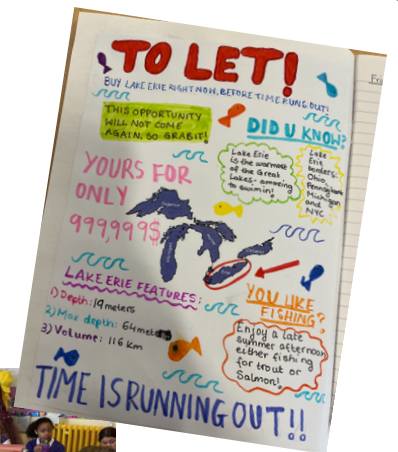 TO LET!
BUY LAKE ERIE RIGHT NOW, BEFORE TIME RUNS OUT!
THIS OPPORTUNITY
WILL NOT COME
AGAIN, SO GRAB IT!
DID U KNOW?
Lake Erie
is the warmest
of the Great
Lakes- amazing
to swim in!
Lake
Erie
borders:
Ohio,
Pennsylvania
Michigan
and
NYC
YOURS FOR
ONLY
999,999$
LAKE ERIE FEATURES:
1) Depth: 19 meters
2) Max depth: 64 meters
3) Volume: 116 km
YOU LIKE
FISHING?
Enjoy a late
summer afternoon
either fishing
for trout or
Salmon!
TIME IS RUNNING OUT!!